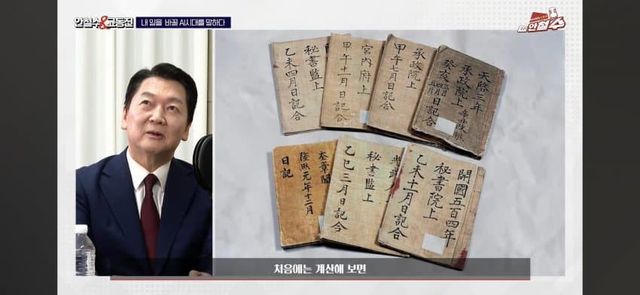 안철수&고동진
내 일을 바꿀 AI시대를 말하다
안철수
天啓三年
承政院上
癸亥
日記合
承政院上
甲午七月日記合
宮內府上
甲午十一月日記合
秘書監上
乙未四月日記合
開國五百四年
秘書院上
乙未十一月日記合
秘書監上
乙巳三月日記合
奎章閣
隆熙元年十二月
日記
처음에는 계산해 보면